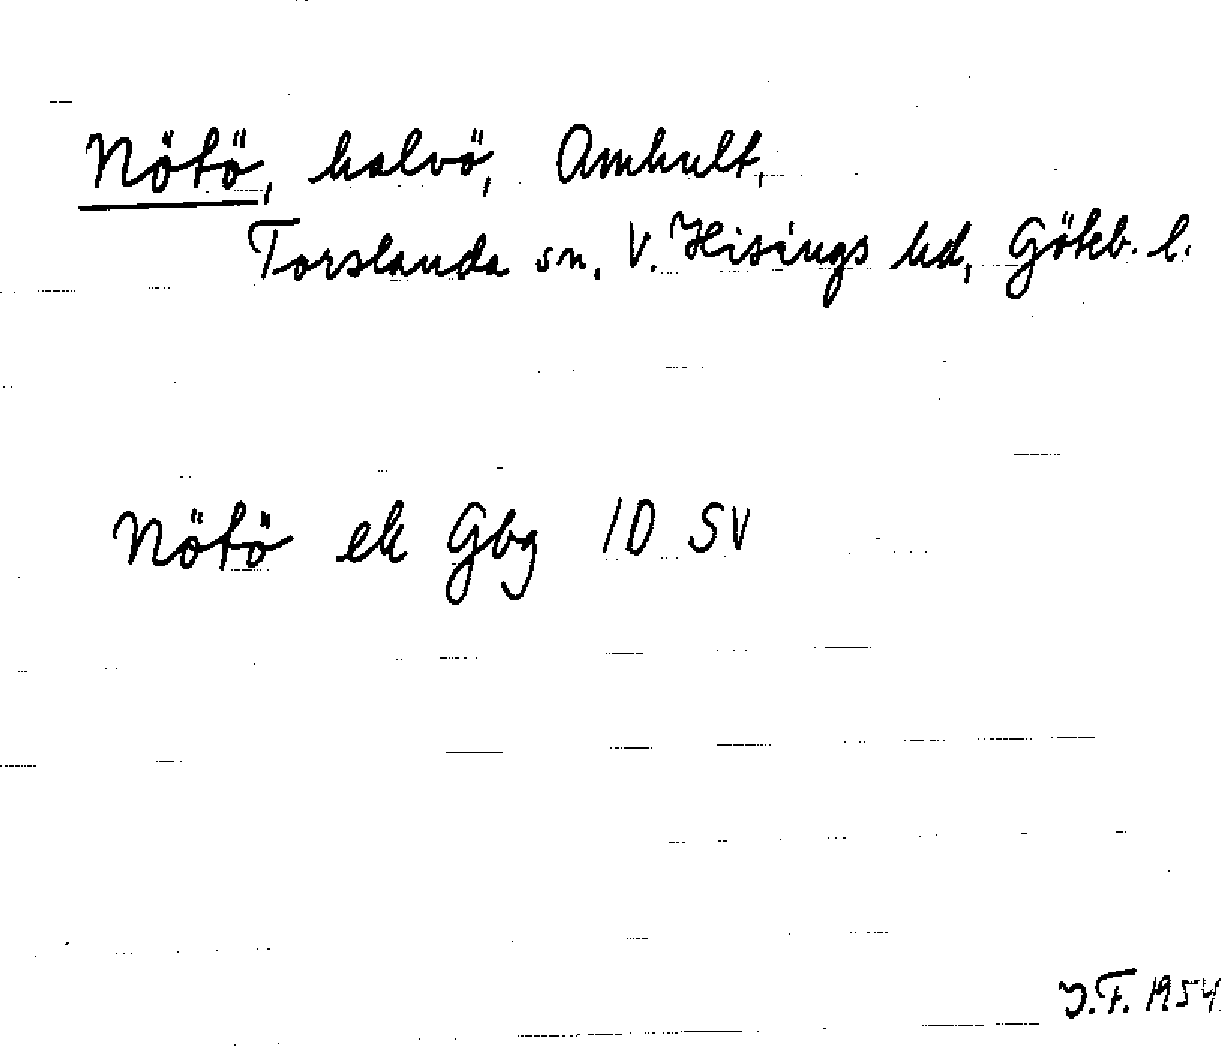 Nötö, halvö, Amhult,
Torslanda sn, V. Hisings hd, Göteb. l.
Nötö ek Gbg 1D SV
J.F. 1954